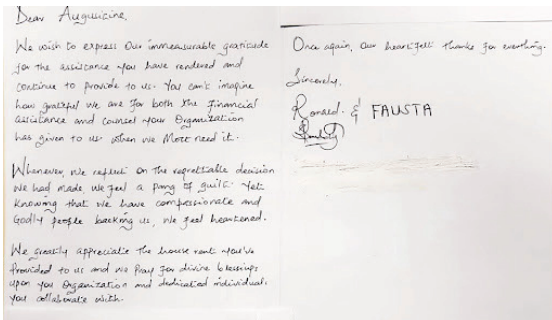 Dear Auguicine,
We wish to express Our immeasurable gratitude
for the assistance you have rendered and
continue to provide to us. You can't imagine
how grateful we are for both the Financial
assistance and counsel your Organization
has given to us when we Most need it.
Whenever, we reflect on the regrettable decision
we had made, we feel a pang of guilt. Yet
Knowing that we have compassionate and
Godly people backing us, we feel heartened.
We greatly appreciate the house rent you've
Provided to us and we Pray for divine blessings
upon you Organization and dedicated individuals
you collaborate with.
Once again, Our heartfelt thanks for everything.
Sincerely,
Ronald. & FAUSTA